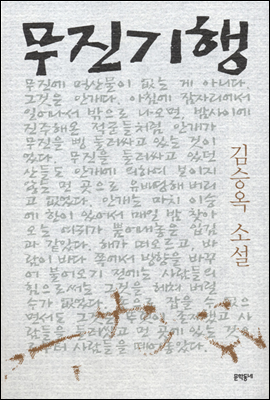 무진기행
무진에 명산물이 없는 게 아니다.
그것은 안개다. 아침에 잠자리에서
일어나서 밖으로 나오면, 밤사이에
진주해온 적군들처럼 안개가
무진을 삥 둘러싸고 있는 것이
었다. 무진을 둘러싸고 있던
산들도 안개에 의하여 보이지
않는 먼 곳으로 유배당해 버리
고 없었다. 안개는 마치 이승
에 한이 있어서 매일 밤 찾아
오는 여귀가 뿜어내놓은 입김
과 같았다. 해가 떠오르고, 바
람이 바다 쪽에서 방향을 바꾸
어 불어오기 전에는 사람들의
힘으로써는 그것을 헤쳐 버릴
수가 없었다. 손으로 잡을 수 없으
면서도 그것은 존재했고 사
람들을 둘러쌌고 먼 곳에 있는 것
부터 사람들을 떼어놓았다.
김승옥 소설
문학동네